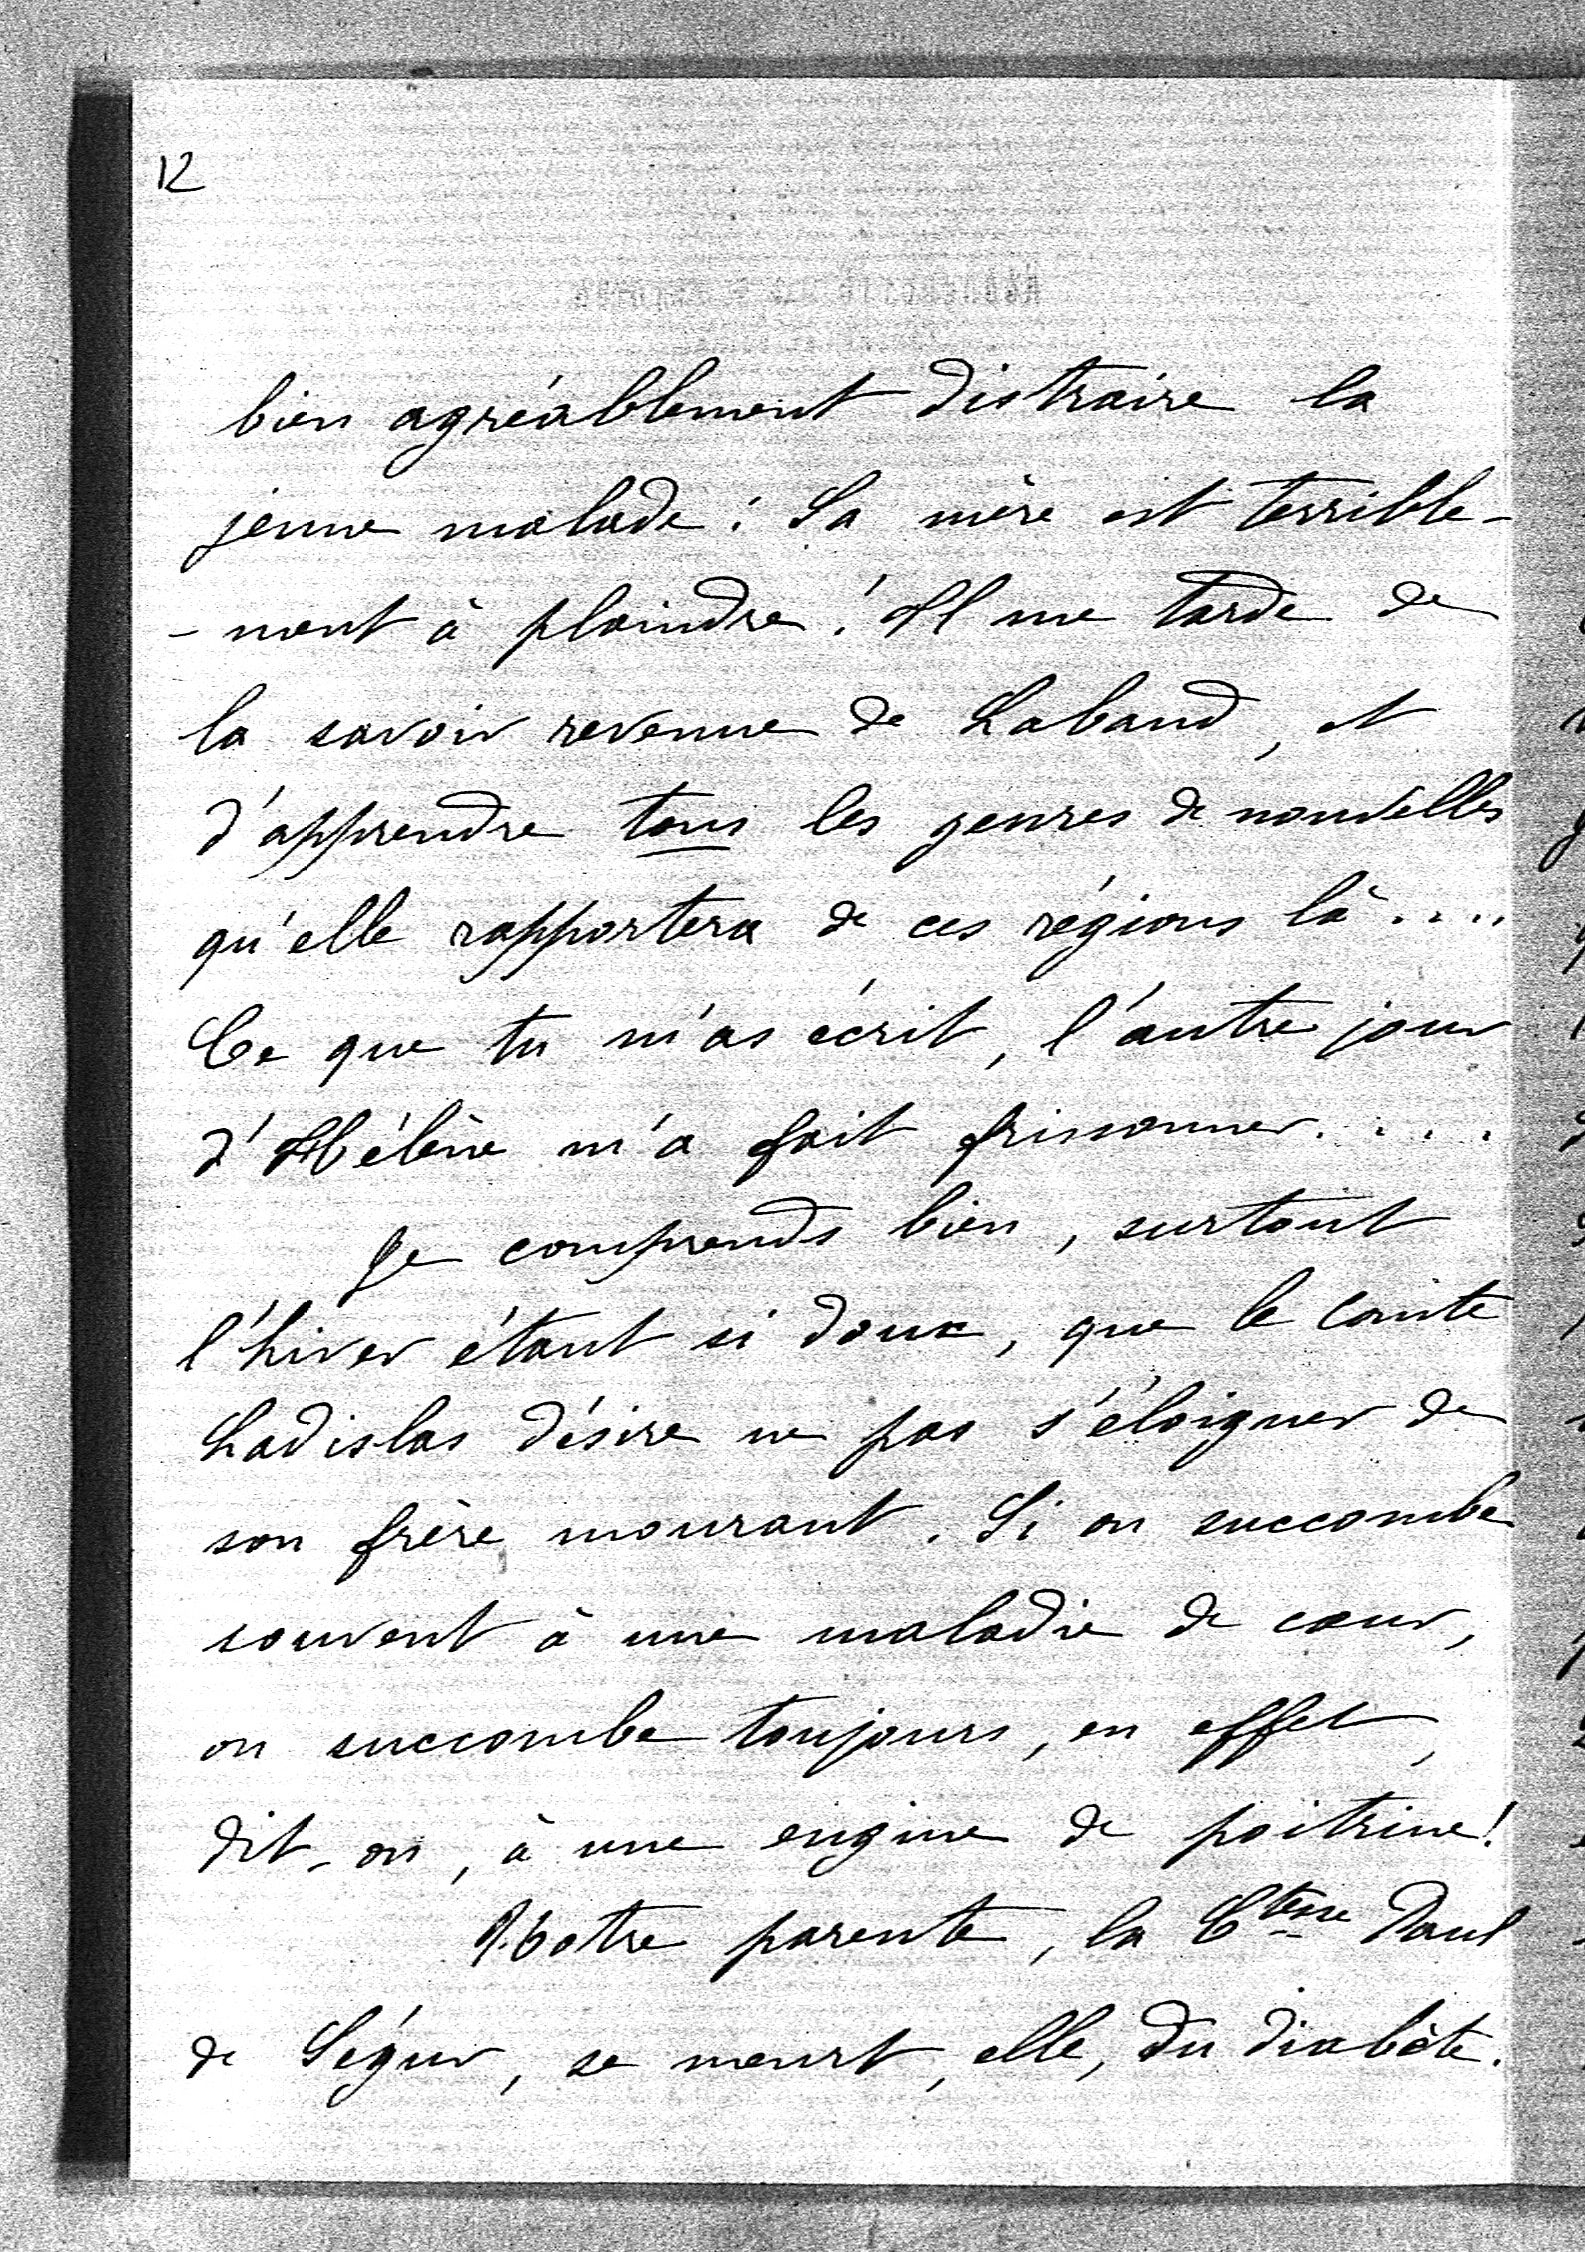 12
bien agréablement distraire la
jeune malade ! Sa mère est terrible-
-ment à plaindre ! Il me tarde de
la savoir revenue de Laband, et
d'apprendre tous les genres de nouvelles
qu'elle rapportera de ces régions là ....
Ce que tu m'as écrit, l'autre jour
d'Hélène m'a fait frissonner ....
Je comprends bien, surtout
l'hiver étant si doux, que le Comte
Ladislas désire ne pas s'éloigner de
son frère mourant. Si on succombe
souvent à une maladie de cœur,
on succombe toujours, en effet,
dit-on, à une angine de poitrine !
Notre parente, la Ctesse Paul
de Ségur, se meurt, elle, du diabète.